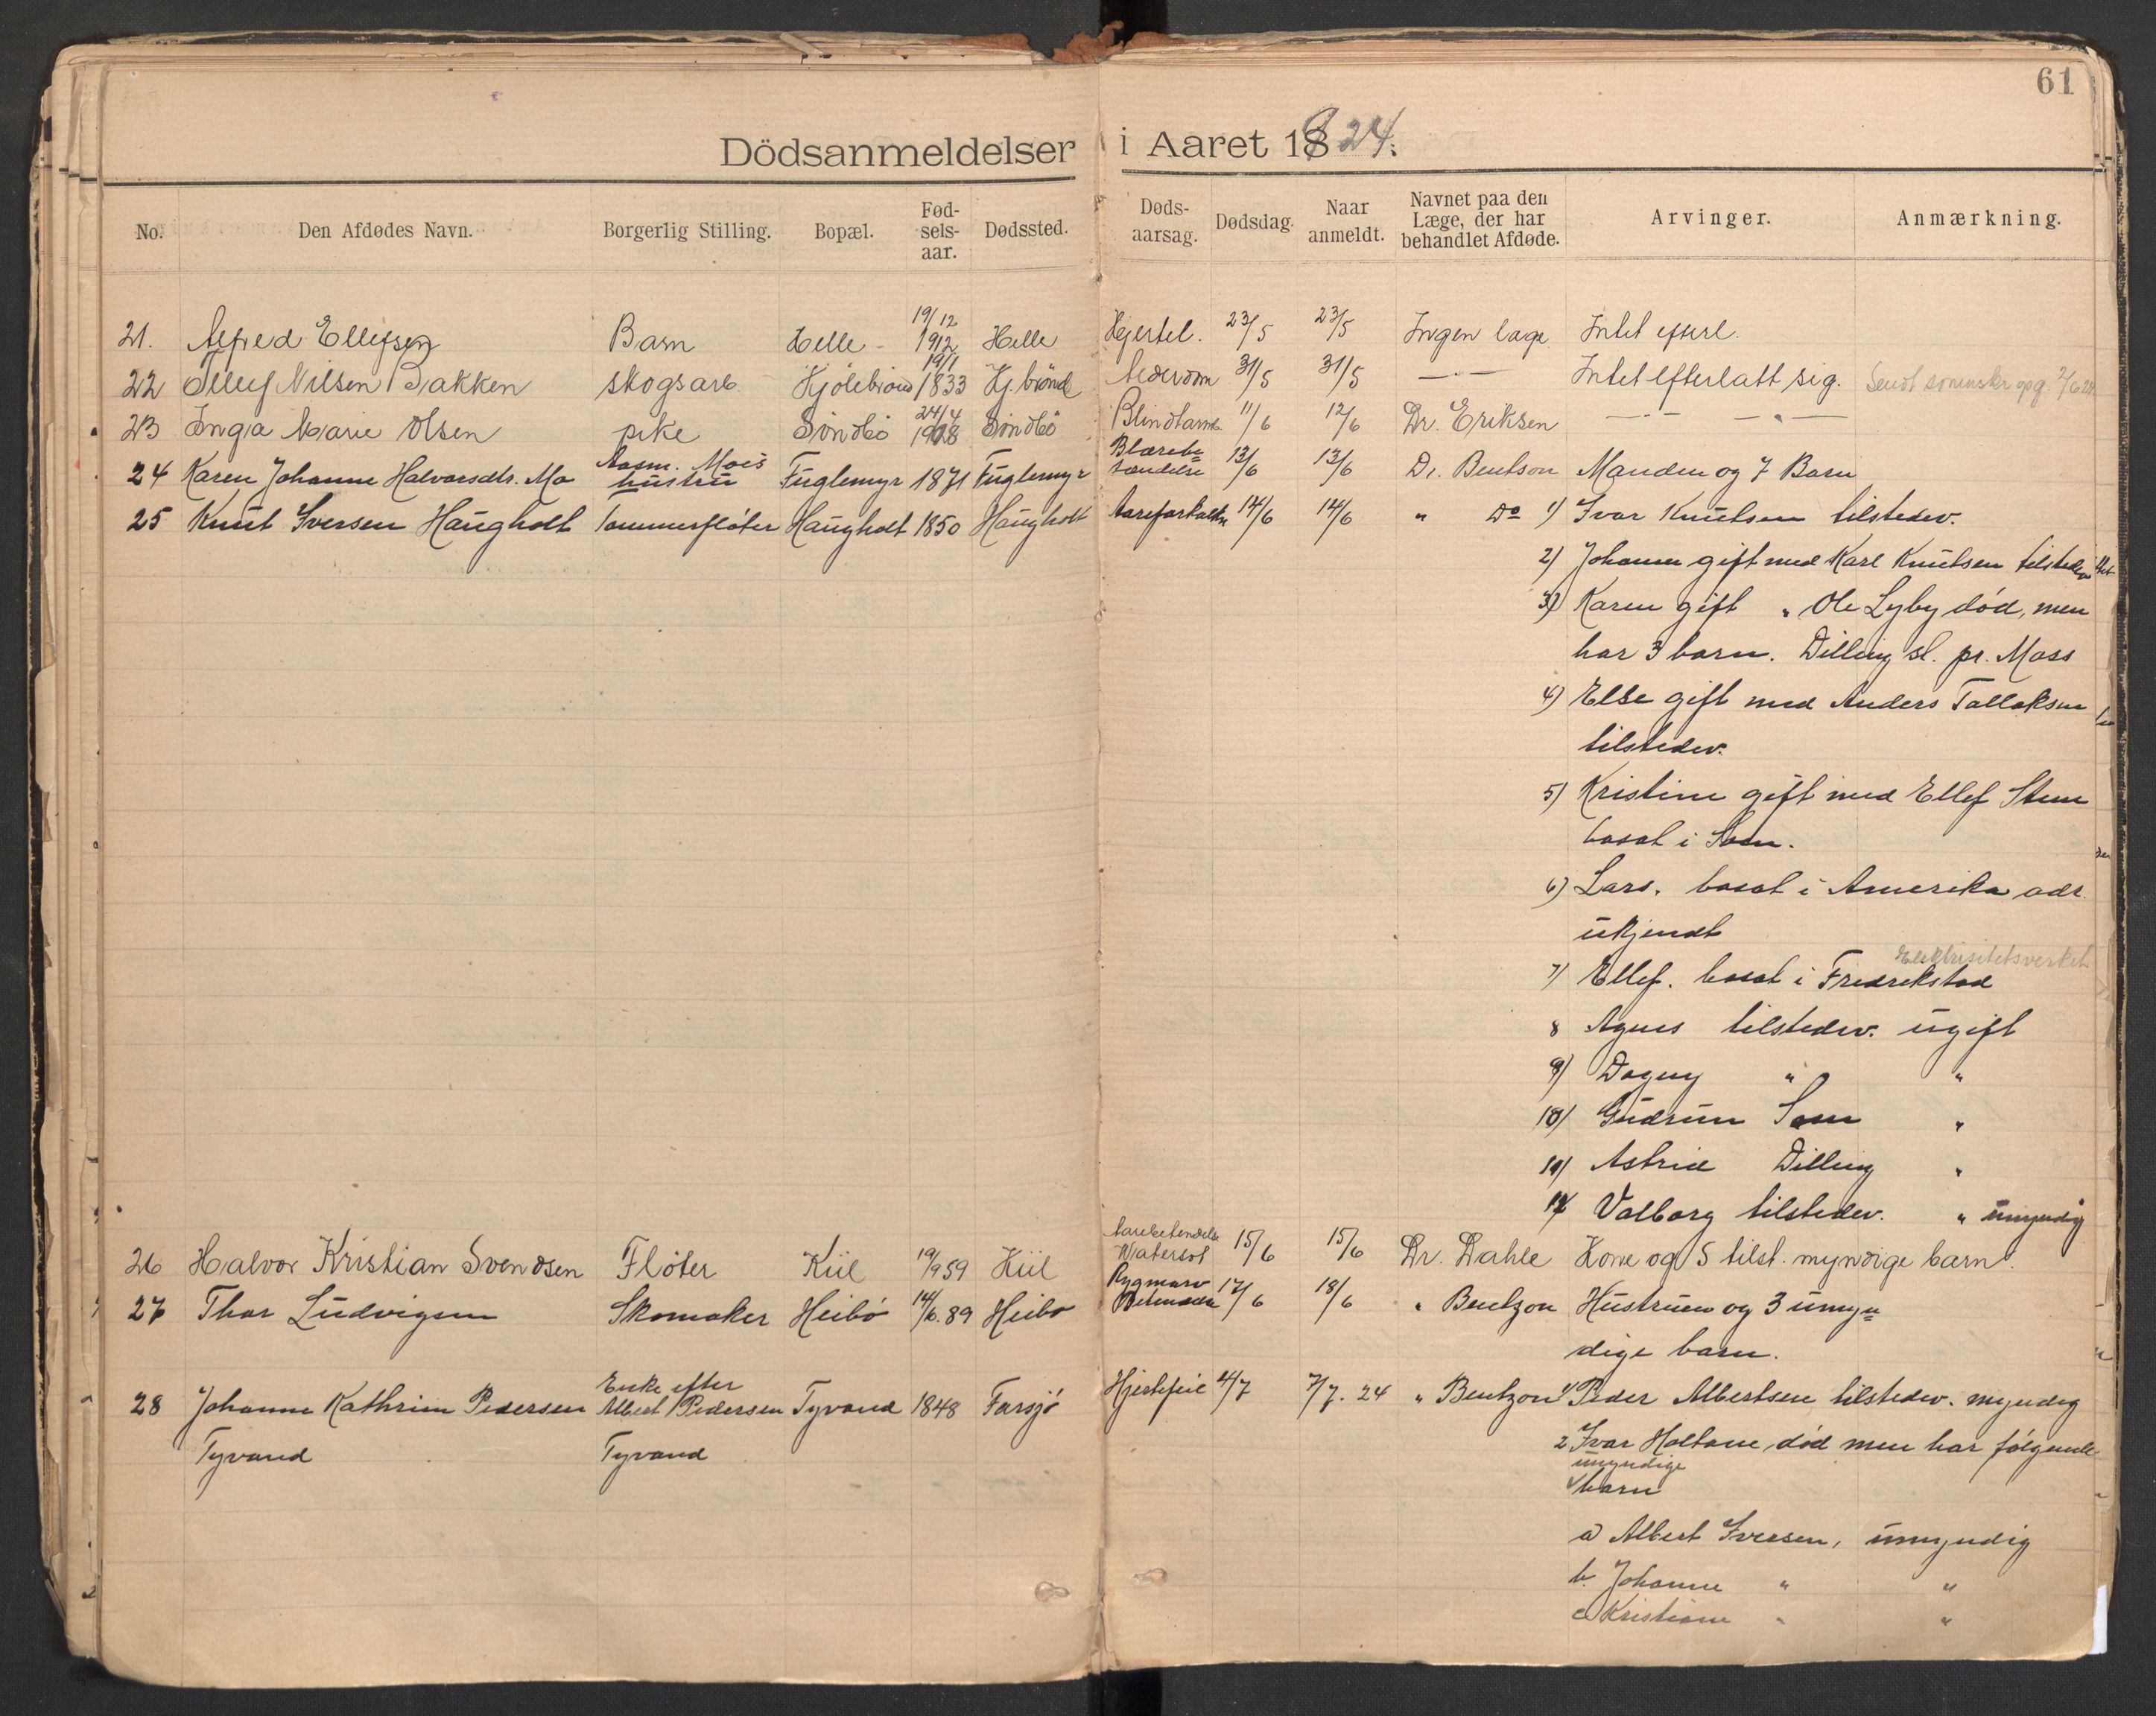 61
Dödsanmeldelser i Aaret 1924.
No. Den Afdødes Navn. Borgerlig Stilling. Bopæl. Fød-sels-aar. Dødssted. Døds-aarsag. Dødsdag. Naar anmeldt. Navnet paa den Læge, der har behandlet Afdøde. Arvinger. Anmærkning.
21. Alfred Ellefsen Barn Helle 19/12 1912 Helle Hjertel. 23/5 23/5 Ingen læge Intet efterl.
22 Tellef Nilsen Bakken skogsarb. 19/1 1833 Kj.brønd Alderdom 31/5 31/5 —"— Intet efterlatt sig.
23 Inga Marie Olsen pike Søndbö 24/4 1908 Søndbö Blindtarmb. 11/6 12/6 Dr. Eriksen —"— —"—
24 Karen Johanne Halvorsdtr. Mo Aasm. Mois hustru Fuglemyr 1871 Fuglemyr Blærebetændelse 13/6 13/6 Dr. Bentson Manden og 7 Barn
25 Knut Iversen Haugholt Tømmerfløter Haugholt 1850 Haugholt Aareforkalkn 14/6 14/6 " Do 1) Ivar Knutsen tilstedev.
2) Johanne gift med Karl Knutsen tilstedev
3) Karen gift " Ole Lyby död, men
har 3 barn. Dilling st. pr. Moss
4) Else gift med Anders Tallaksen
tilstedev.
5) Kristine gift med Ellef Stene
bosat i Son.
6) Lars. bosat i Amerika adr.
ukjendt
Elektrisitetsverket
7) Ellef. bosat i Fredrikstad
8 Agnes tilstedev. ugift
9) Dagny " "
10) Gudrun Son "
11) Astrid Dilling "
12) Valborg tilstedev. " umyndig
26 Halvor Kristian Svendsen Fløter Kiil 19/9 59 Kiil Aarebetendelse Vatersot 15/6 15/6 Dr. Dahle Kone og 5 tilst. myndige barn.
27 Thor Ludvigsen Skomaker Heibö 14/6. 89 Heibö Rygmarv Betendelse 17/6 18/6 " Bentzon Hustruen og 3 umyn=
dige barn.
28 Johanne Kathrine Pedersen Enke efter Albert Pedersen Tyvand 1848 Farsjø Hjertefeil 4/7 7/7. 24 " Bentzon 1/ Peder Albertsen tilstedev. myndig
Tyvand Tyvand 2 Ivar Holtane, död men har følgende
umyndige
barn
a) Albert Iversen, umyndig
b. Johanne " "
c Kristiane " "